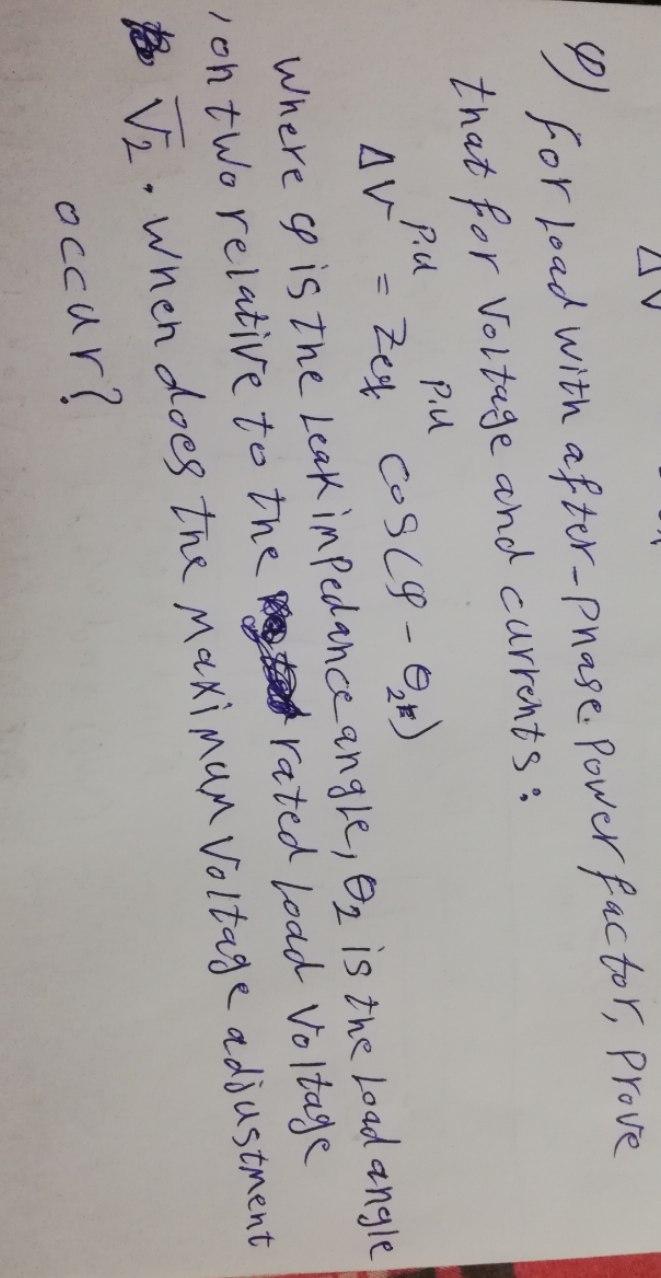 ΔV
φ) for load with after-phase power factor, prove
that for voltage and currents:
ΔV^{P.U} = Zeq^{P.U} cos(φ - θ₂)
where φ is the leak impedance angle, θ₂ is the load angle
, on two relative to the rated load voltage
V̅₂. when does the maximum voltage adjustment
occur?